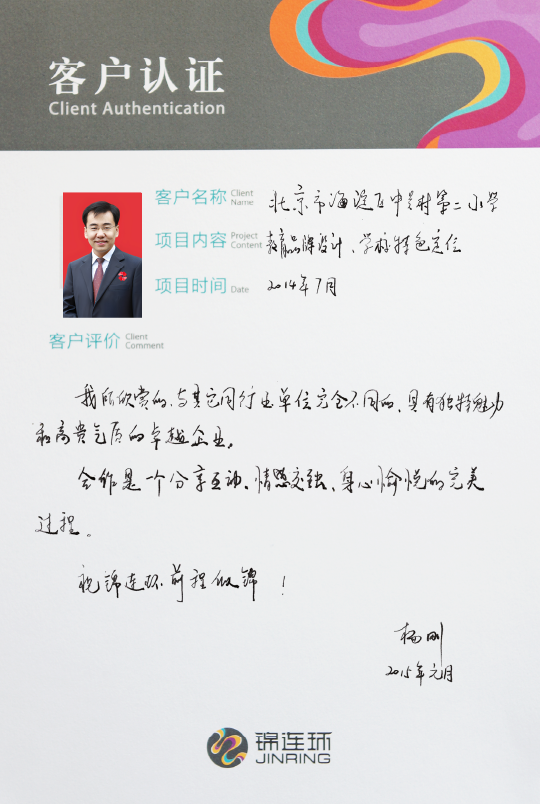 客户认证
Client Authentication
客户名称 Client Name 北京市海淀区中关村第二小学
项目内容 Project Content 教育品牌设计、学校特色定位
项目时间 Date 2014年7月
客户评价 Client Comment
我所欣赏的,与其它同行业单位完全不同的,具有独特魅力
和高贵气质的卓越企业。
合作是一个分享互动、情感交融、身心愉悦的完美
过程。
祝锦连环前程似锦!
杨刚
2015年元月
锦连环
JINRING